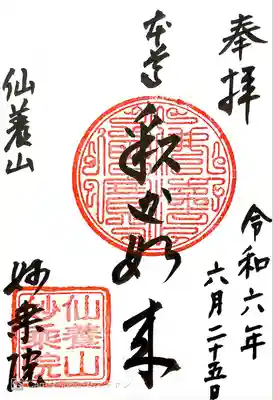 奉拝
令和六年
六月二十五日
本尊
釈迦如来
仙養山
妙乗院
仙養山
妙乗院